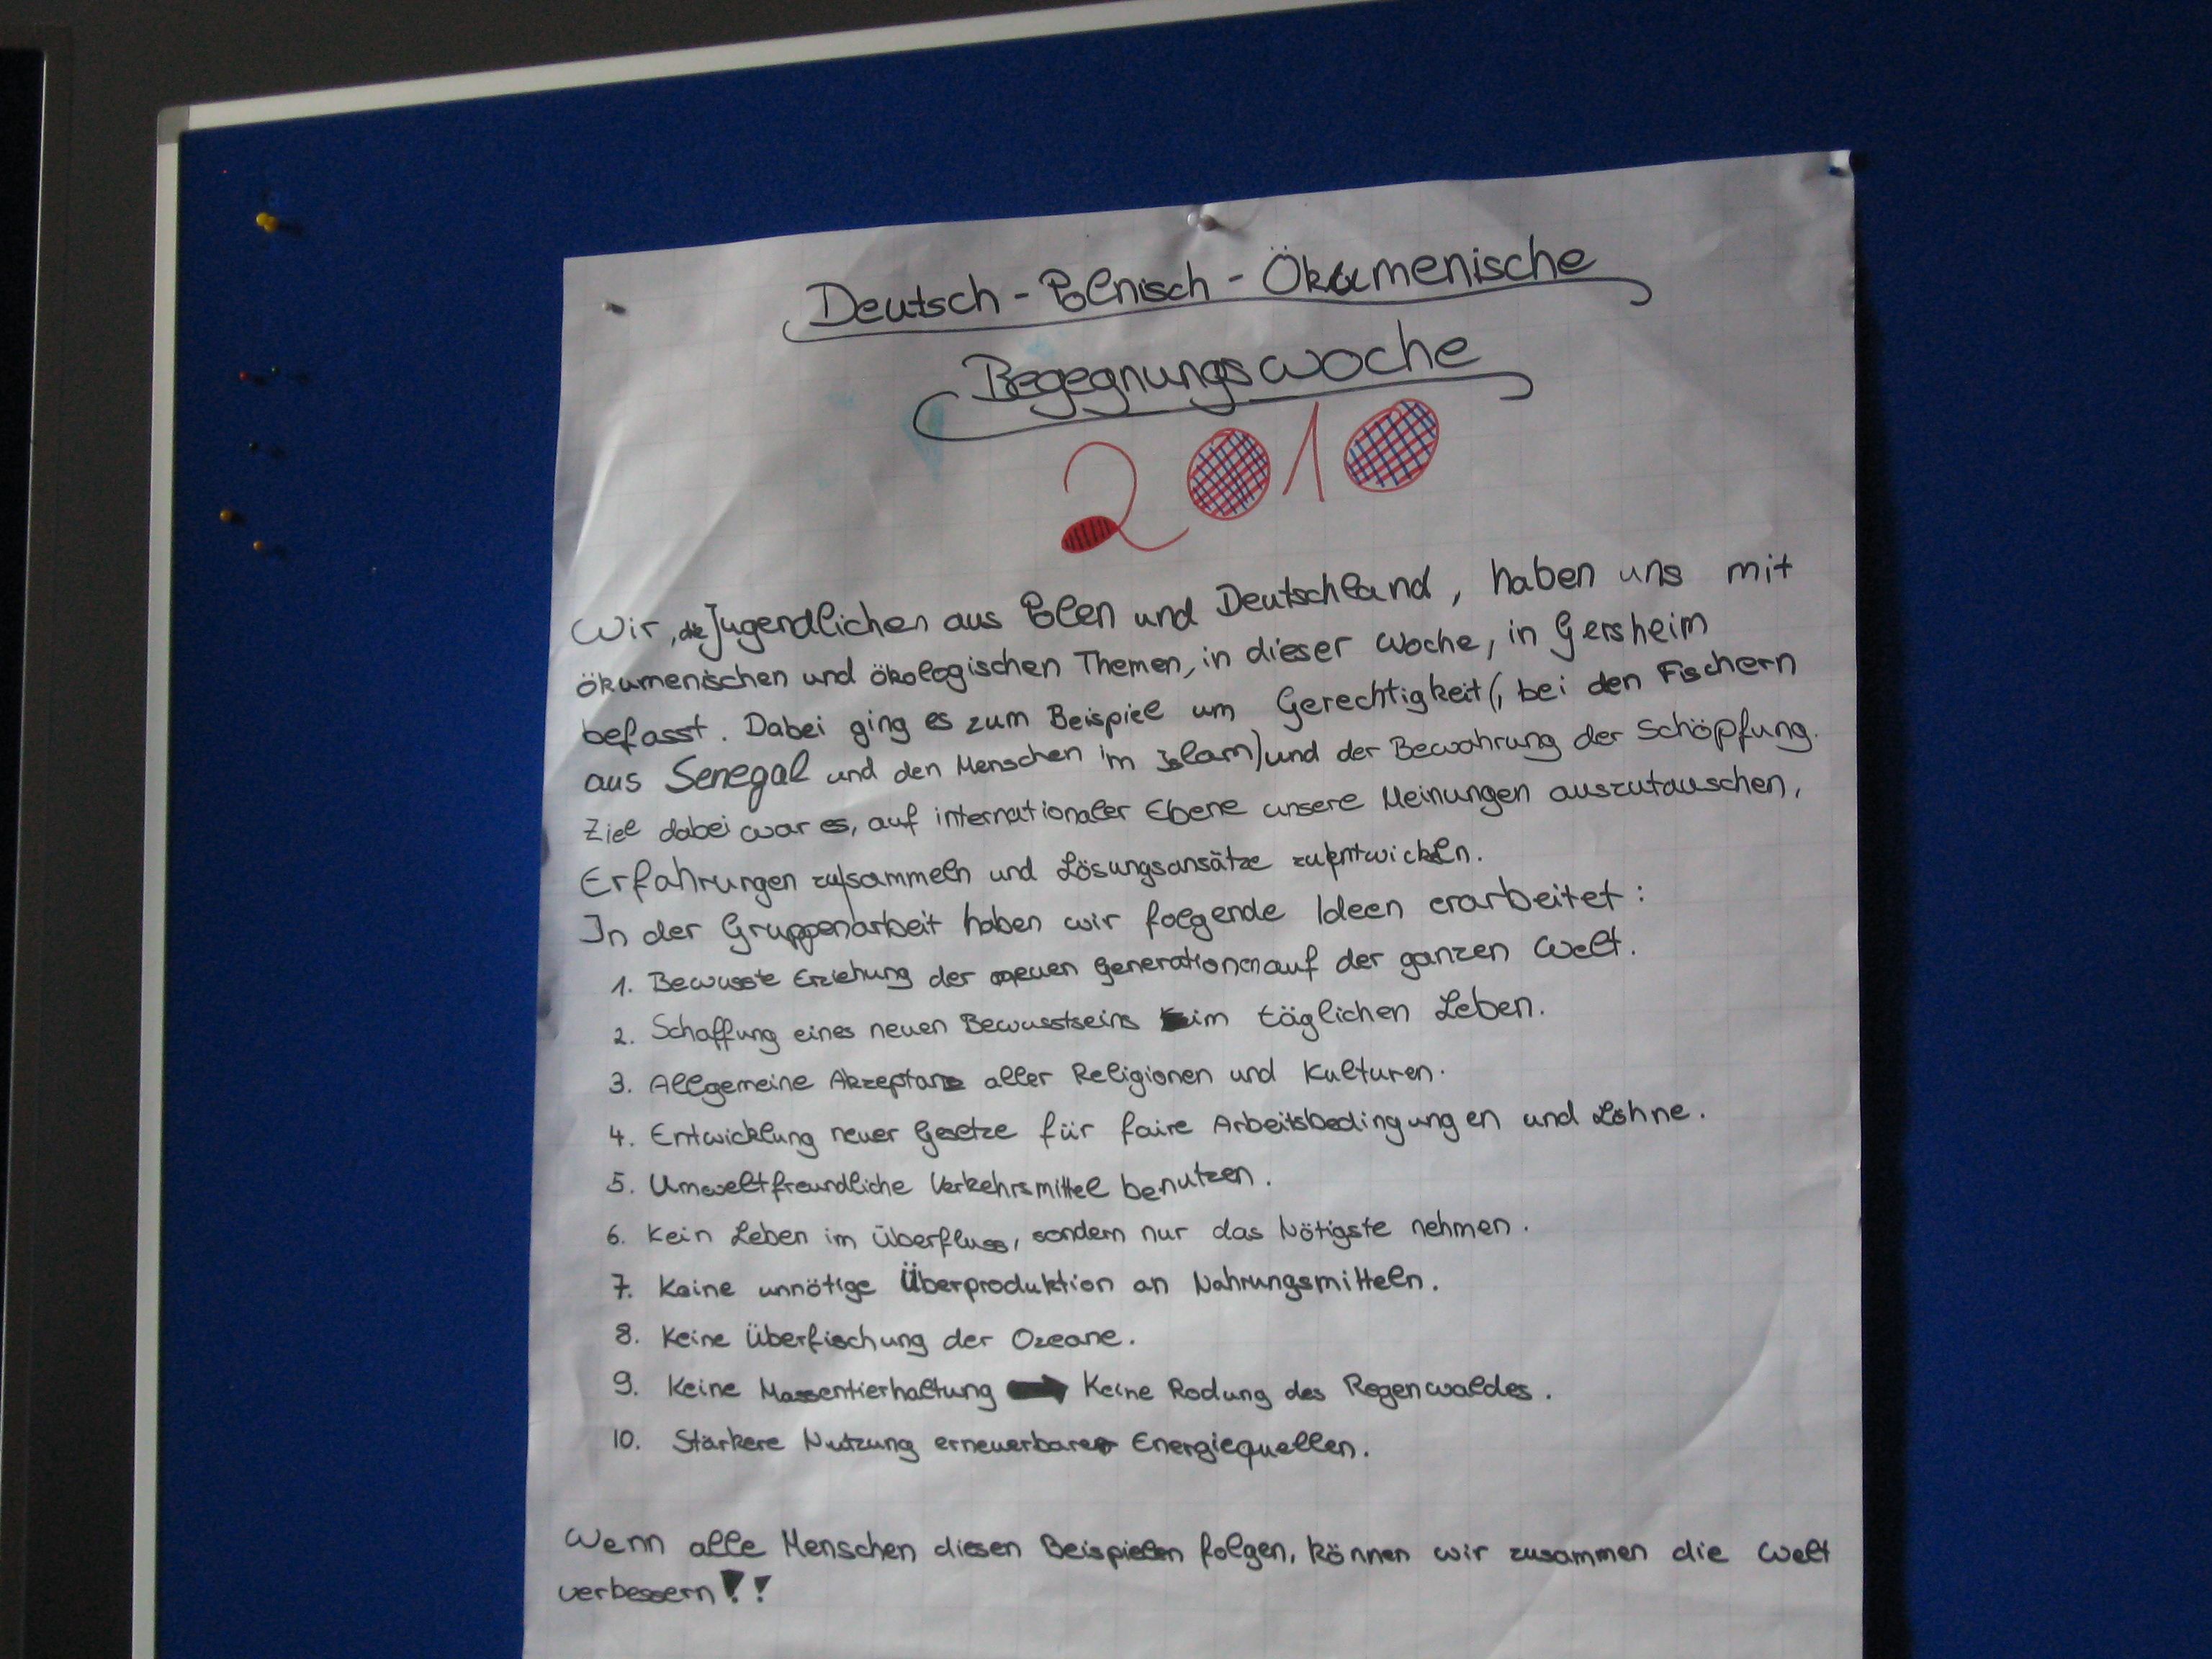 Deutsch-Polnisch-Ökumenische
Begegnungswoche
2010
Wir, die Jugendlichen aus Polen und Deutschland, haben uns mit
ökumenischen und ökologischen Themen, in dieser Woche, in Gersheim
befasst. Dabei ging es zum Beispiel um Gerechtigkeit(, bei den Fischern
aus Senegal und den Menschen im Islam) und der Bewahrung der Schöpfung.
Ziel dabei war es, auf internationaler Ebene unsere Meinungen auszutauschen,
Erfahrungen zu sammeln und Lösungsansätze zu entwickeln.
In der Gruppenarbeit haben wir folgende Ideen erarbeitet:
1. Bewusste Erziehung der neuen Generationen auf der ganzen Welt.
2. Schaffung eines neuen Bewusstseins im täglichen Leben.
3. Allgemeine Akzeptanz aller Religionen und Kulturen.
4. Entwicklung neuer Gesetze für faire Arbeitsbedingungen und Löhne.
5. Umweltfreundliche Verkehrsmittel benutzen.
6. Kein Leben im Überfluss, sondern nur das Nötigste nehmen.
7. Keine unnötige Überproduktion an Nahrungsmitteln.
8. Keine Überfischung der Ozeane.
9. Keine Massentierhaltung → Keine Rodung des Regenwaldes.
10. Stärkere Nutzung erneuerbarer Energiequellen.
Wenn alle Menschen diesen Beispielen folgen, können wir zusammen die Welt
verbessern!!